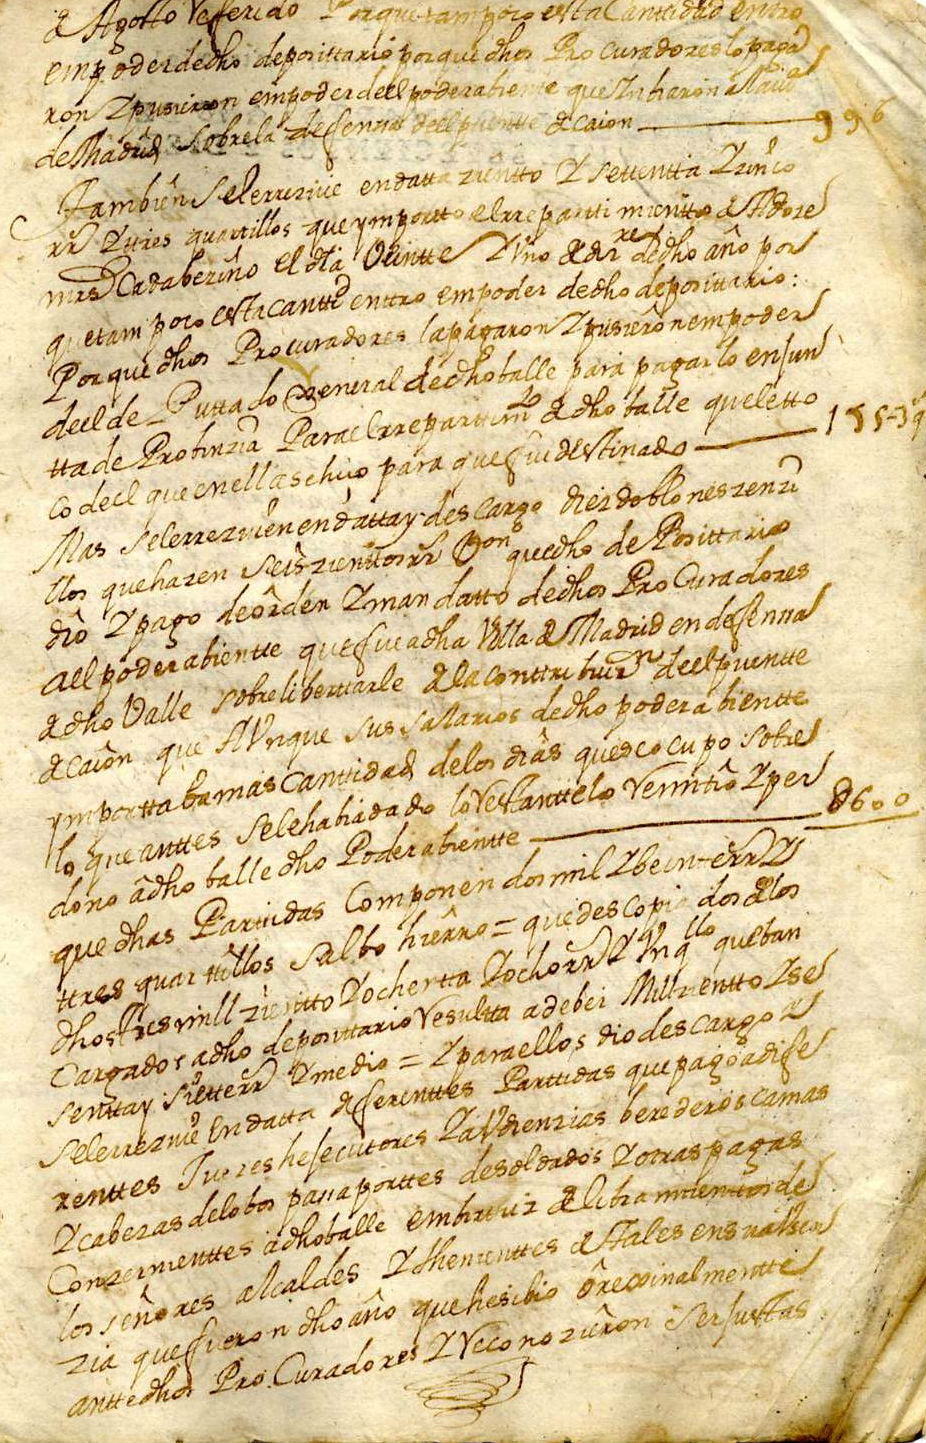 de Agosto referido Porque tampoco esta Canttidad entro
em poder de dho deposittario porque dhos Procuradores lo paga
ron Y pusieron em poder de el poderabiente que Inbiaron a la Vª
de Madrid sobre la defenssa de el puentte de caion 996
Tambien se le rrezive en datta zientto Y settentta Y zinco
rrs Y ttres quartillos que ymportto el rrepartimientto de Adoze
mrs Cada bezino el dia Veintte Y Uno de dizre de dho año por
que tampoco esta Canttd enttro em poder de dho deposittario:
Porque dhos Procuradores la pagaron Y pusieron em poder
de el de Puttado General de dho balle para pagarlo en Jun
tta de Probinzia Para el rrepartimto de dho balle que le tto
co de el que en ella se hizo para que fue desttinado 175-3q
Mas se le rreziven en datta y descargo diez doblones zenzi
llos que hazen seiszienttos rrs Von que dho de Posittario
dio Y pago de orden Y mandatto de dhos Pro Curadores
a el poderabientte que fue a dha Villa de Madrid en defenssa
de dho Valle sobre libertarle de la conttribuzn de el puentte
de caion que AUnque sus salarios de dho poderabientte
ymporttaba mas Canttidad de los dias que se ocupo sobre
lo que anttes se le habia dado lo restantte lo remitio Y per
dono a dho balle dho Poderabientte 600
que dhas Parttidas Componen dos mil Y beintte rrs Y
ttres quarttillos salbo hierro = que descopiados de los
dhos ttres mill zientto Y ochentta Y ocho rrs Y Un qllo que ban
Cargados a dho deposittario resultta a deber Mill zientto Y se
sentta y siette rrs Y medio = Y para ellos dio descargo Y
se le rrezive en datta diferenttes Parttidas que pago a dife
renttes Juezes hesecutores Y aUdienzias berederos camas
Y cabezas de lobos passaporttes de soldados Y otras pagas
Conzernienttes a dho balle em birttud de libramienttos de
los señores alcaldes Y thenienttes de ttales en su aUsen
zia que fueron dho año que hesibio orexinalmentte
antte dhos Pro Curadores Y reconozieron ser Justas